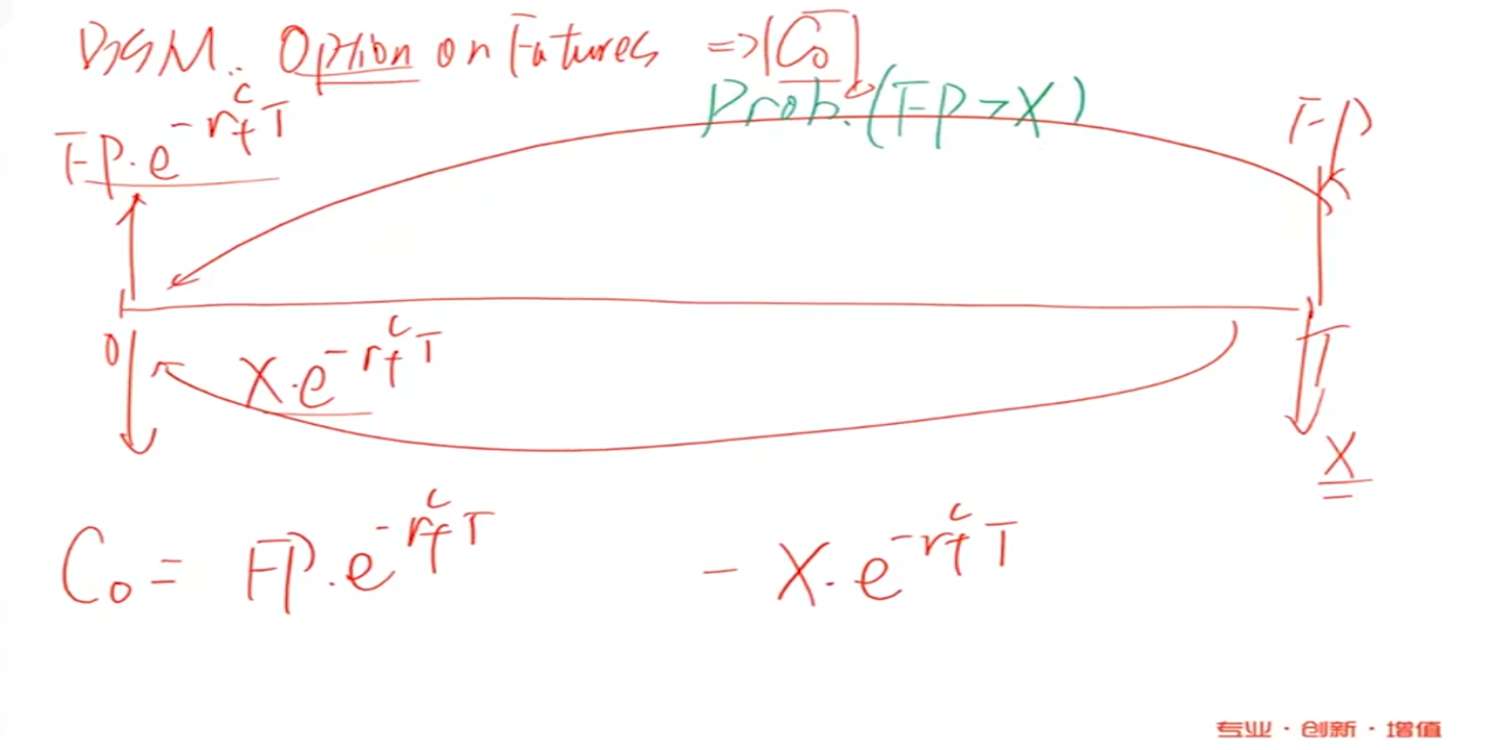 BSM: Option on Futures => C₀
Prob.(FP>X)
FP·e^{-r_f^c T}
FP
0
T
X·e^{-r_f^c T}
X
C₀ = FP·e^{-r_f^c T} - X·e^{-r_f^c T}
专业·创新·增值